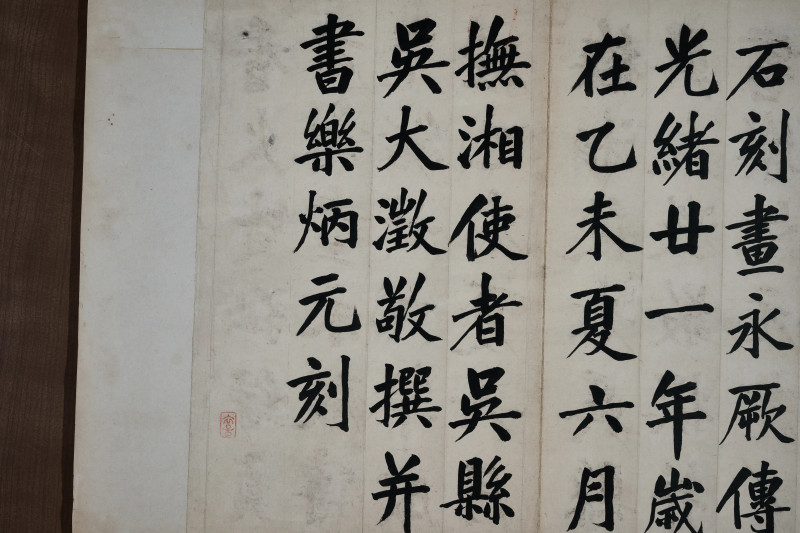 石刻畫永厥傳
光緒廿一年歲
在乙未夏六月
撫湘使者吳縣
吳大澂敬撰并
書樂炳元刻